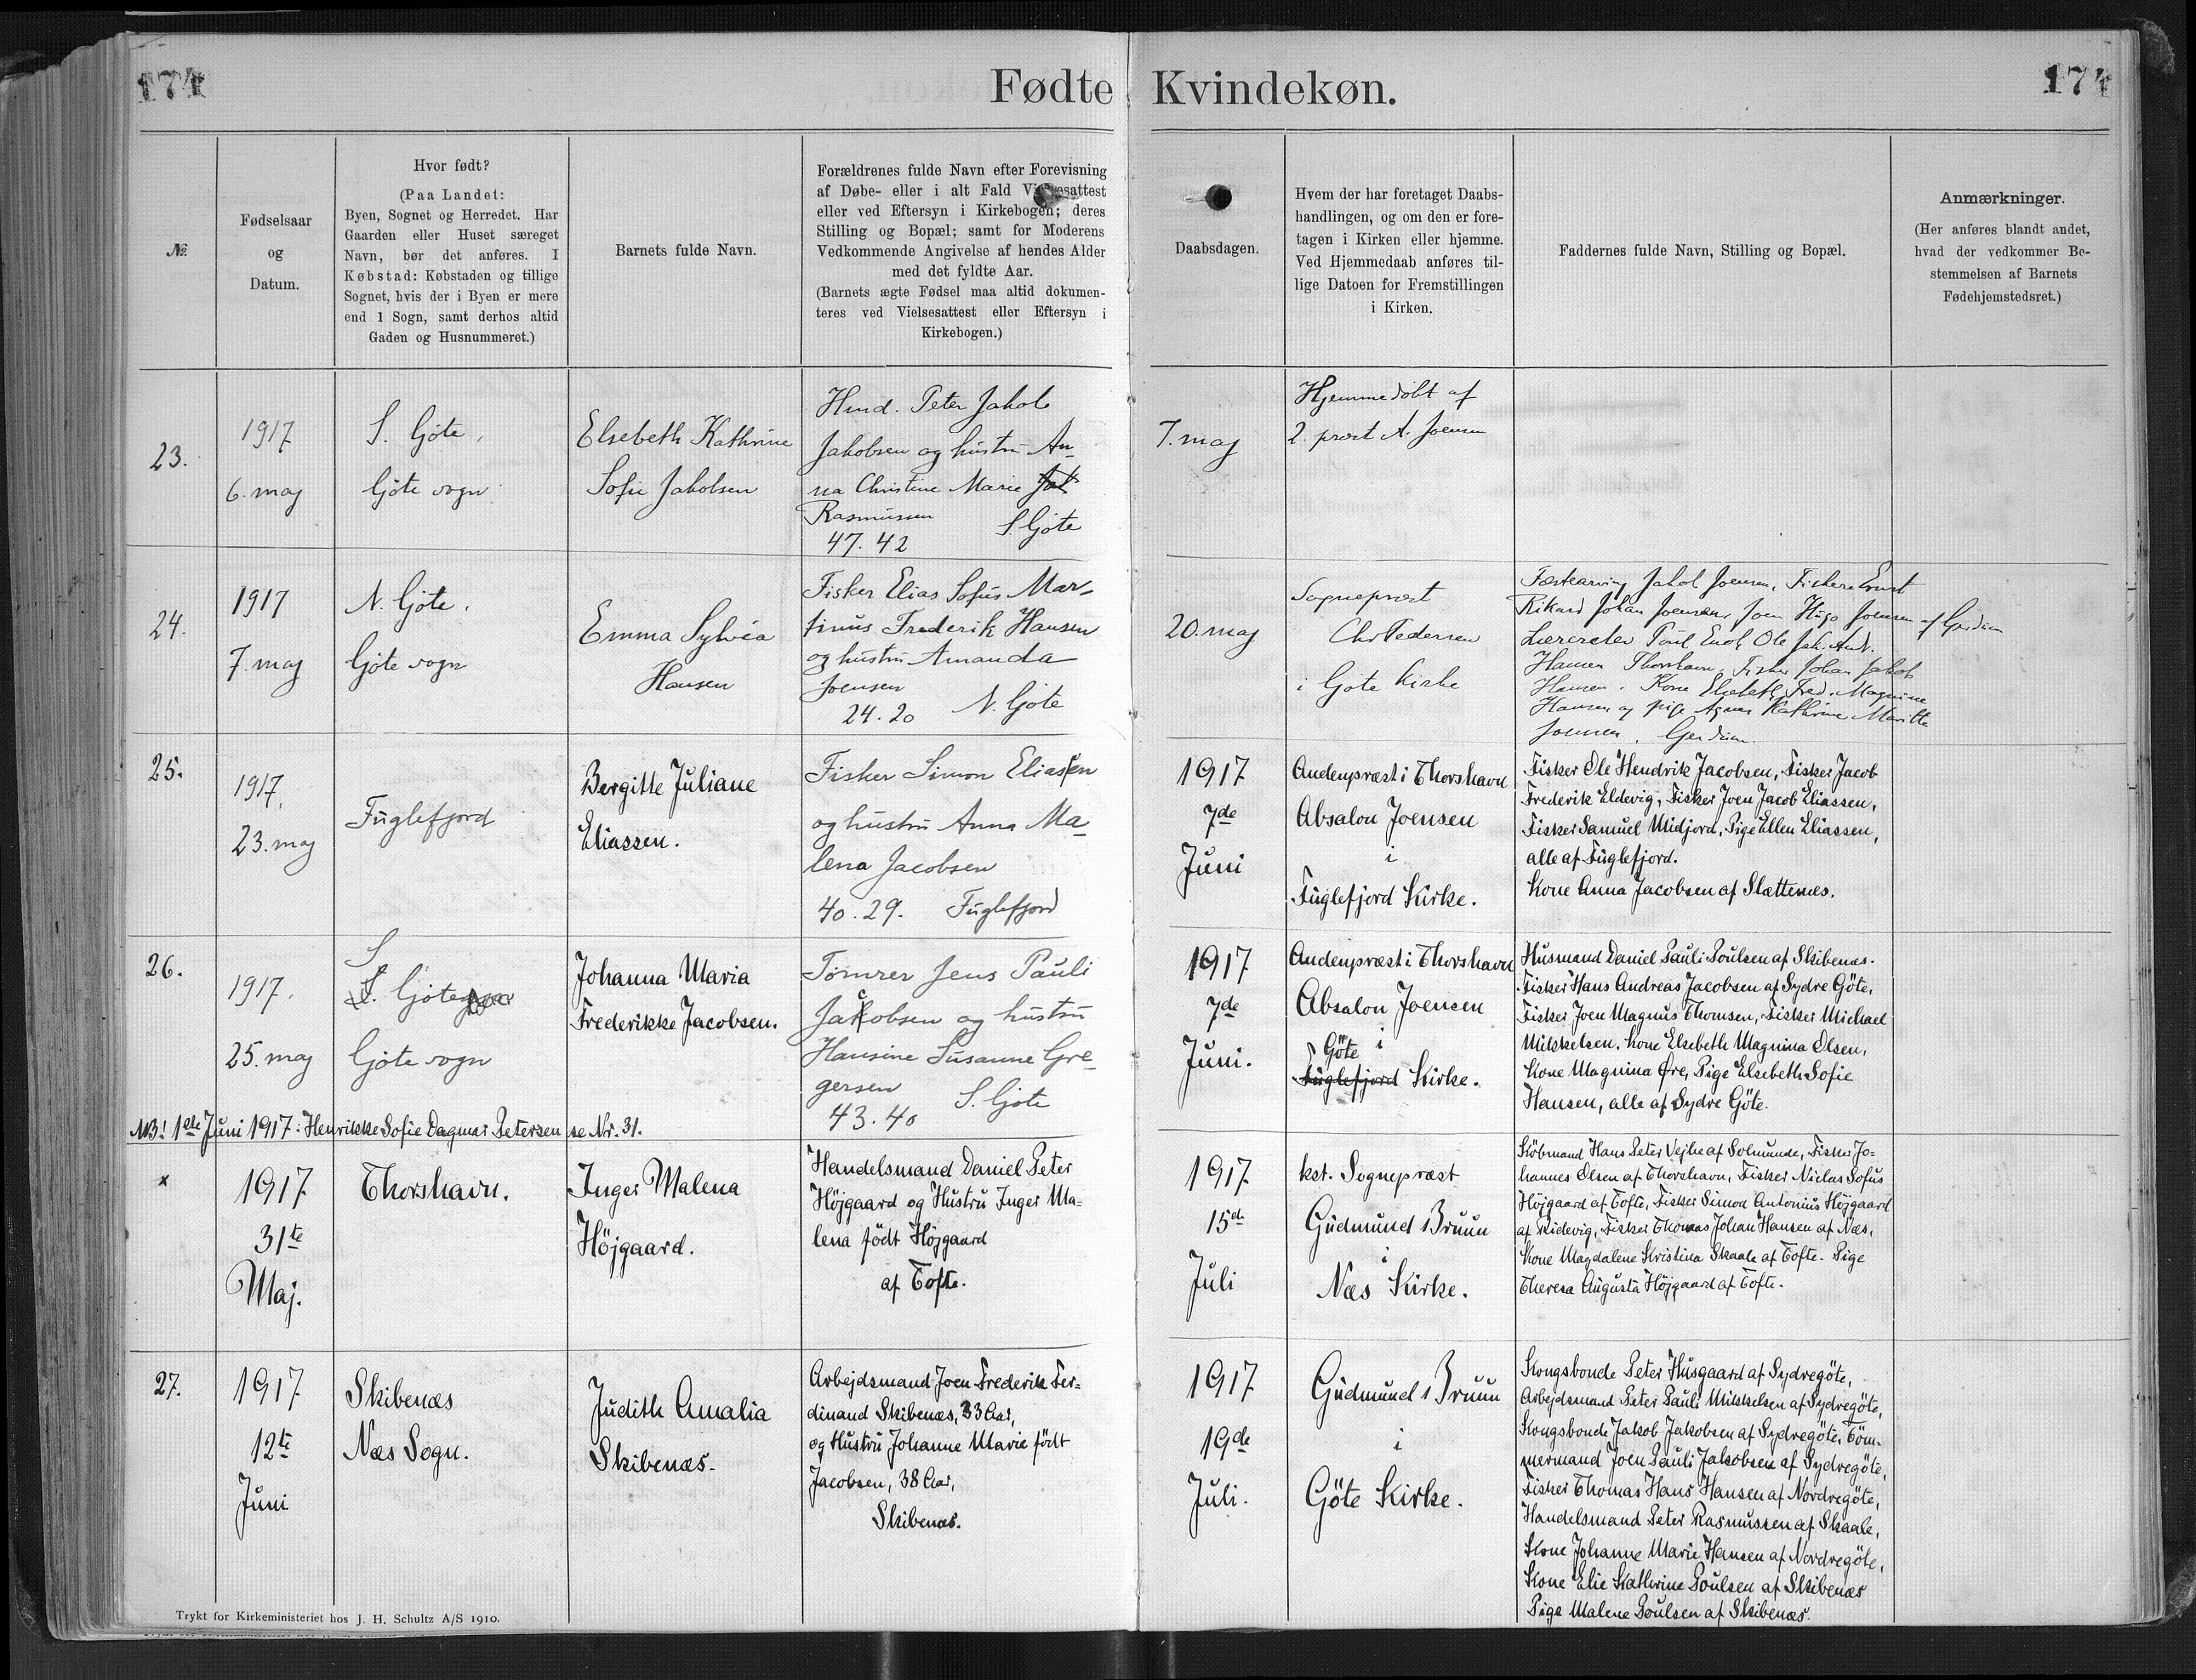 174
Fødte Kvindekøn.
174
№
Fødselsaar
og
Datum.
Hvor født?
(Paa Landet:
Byen, Sognet og Herredet. Har
Gaarden eller Huset særeget
Navn, bør det anføres. I
Købstad: Købstaden og tillige
Sognet, hvis der i Byen er mere
end 1 Sogn, samt derhos altid
Gaden og Husnummeret.)
Barnets fulde Navn.
Forældrenes fulde Navn efter Forevisning
af Døbe- eller i alt Fald Vielsesattest
eller ved Eftersyn i Kirkebogen; deres
Stilling og Bopæl; samt for Moderens
Vedkommende Angivelse af hendes Alder
med det fyldte Aar.
(Barnets ægte Fødsel maa altid dokumen-
teres ved Vielsesattest eller Eftersyn i
Kirkebogen.)
Daabsdagen.
Hvem der har foretaget Daabs-
handlingen, og om den er fore-
tagen i Kirken eller hjemme.
Ved Hjemmedaab anføres til-
lige Datoen for Fremstillingen
i Kirken.
Faddernes fulde Navn, Stilling og Bopæl.
Anmærkninger.
(Her anføres blandt andet,
hvad der vedkommer Be-
stemmelsen af Barnets
Fødehjemstedsret.)
23.
1917
6. maj
S. Göte,
Göte sogn
Elsebeth Kathrine
Sofie Jakobsen
Hmd. Peter Jakob
Jakobsen og hustru An-
na Christine Marie
Rasmussen
S. Göte
47. 42
7. maj
Hjemmedöbt af
2. præst A. Joensen
24.
1917
7. maj
N. Göte,
Göte sogn
Emma Sylvia
Hansen
Fisker Elias Sofus Mar-
tinus Frederik Hansen
og hustru Amanda
Joensen
24. 20 N. Göte
20. maj
Sognepræst
Chr Pedersen
i Göte Kirke
Fæstearving Jakob Joensen, Fiskere Ernst
Rikard Johan Joensen, Joen Hugo Joensen af Gerdum
Lærerelev Poul Enok Ole Jak. Andr.
Hansen Thorshavn, Fisker Johan Jakob
Hansen. Kone Elsebeth Fred. Magnine
Hansen og pige Agnes Kathrine Maritte
Joensen, Gerdum
25.
1917.
23. maj
Fuglefjord
Bergitte Juliane
Eliassen.
Fisker Simon Eliasen
og hustru Anna Ma-
lena Jacobsen
40. 29. Fuglefjord
1917
7de
Juni
Andenpræst i Thorshavn
Absalon Joensen
i
Fuglefjord Kirke.
Fisker Ole Hendrik Jacobsen, Fisker Jacob
Frederik Eldevig, Fisker Joen Jacob Eliassen,
Fisker Samuel Midjord, Pige Ellen Eliassen,
alle af Fuglefjord.
Kone Anna Jacobsen af Slættenæs.
26.
1917.
25. maj
S
S. Göte
Göte sogn
Johanna Maria
Frederikke Jacobsen.
Tömrer Jens Pauli
Jacobsen og hustru
Hansine Susanne Gre-
gersen
43. 40 S. Göte
1917
7de
Juni.
Andenpræst i Thorshavn
Absalon Joensen
Göte i
Fuglefjord Kirke.
Husmand Daniel Pauli Poulsen af Skibenæs.
Fisker Hans Andreas Jacobsen af Sydre Göte,
Fisker Joen Magnus Thomsen, Fisker Michael
Mikkelsen, Kone Elsebeth Magnina Olsen,
Kone Magnina Øre, Pige Elsebeth Sofie
Hansen, alle af Sydre Göte.
NB! 1ste Juni 1917: Henrikke Sofie Dagmar Petersen se Nr. 31.
x
1917
31te
Maj.
Thorshavn.
Inger Malena
Höjgaard.
Handelsmand Daniel Peter
Höjgaard og Hustru Inger Ma-
lena födt Höjgaard
af Tofte.
1917
15de
Juli
kst. Sognepræst
Gudmund Bruun
i
Næs Kirke.
Köbmand Hans Peter Vejhe af Solmunde, Fisker Jo-
hannes Olsen af Thorshavn, Fisker Niclas Sofus
Höjgaard af Tofte, Fisker Simon Antonius Höjgaard
af Ridevig, Fisker Thomas Johan Hansen af Næs,
Kone Magdalene Kristina Skaale af Tofte. Pige
Theresa Augusta Höjgaard af Tofte.
27.
1917
12te
Juni
Skibenæs
Næs Sogn.
Judith Amalia
Skibenæs.
Arbejdsmand Joen Frederik Fer-
dinand Skibenæs, 33 Aar,
og Hustru Johanne Marie födt
Jacobsen, 38 Aar,
Skibenæs.
1917
19de
Juli.
Gudmund Bruun
i
Göte Kirke.
Kongsbonde Peter Husgaard af Sydregöte,
Arbejdsmand Peter Pauli Mikkelsen af Sydregöte,
Kongsbonde Jakob Jakobsen af Sydregöte, Töm-
mermand Joen Pauli Jakobsen af Sydregöte,
Fisker Thomas Hans Hansen af Nordregöte,
Handelsmand Peter Rasmussen af Skaale,
Kone Johanne Marie Hansen af Nordregöte,
Kone Elie Kathrine Poulsen af Skibenæs
Pige Malene Poulsen af Skibenæs.
Trykt for Kirkeministeriet hos J. H. Schultz A/S 1910.